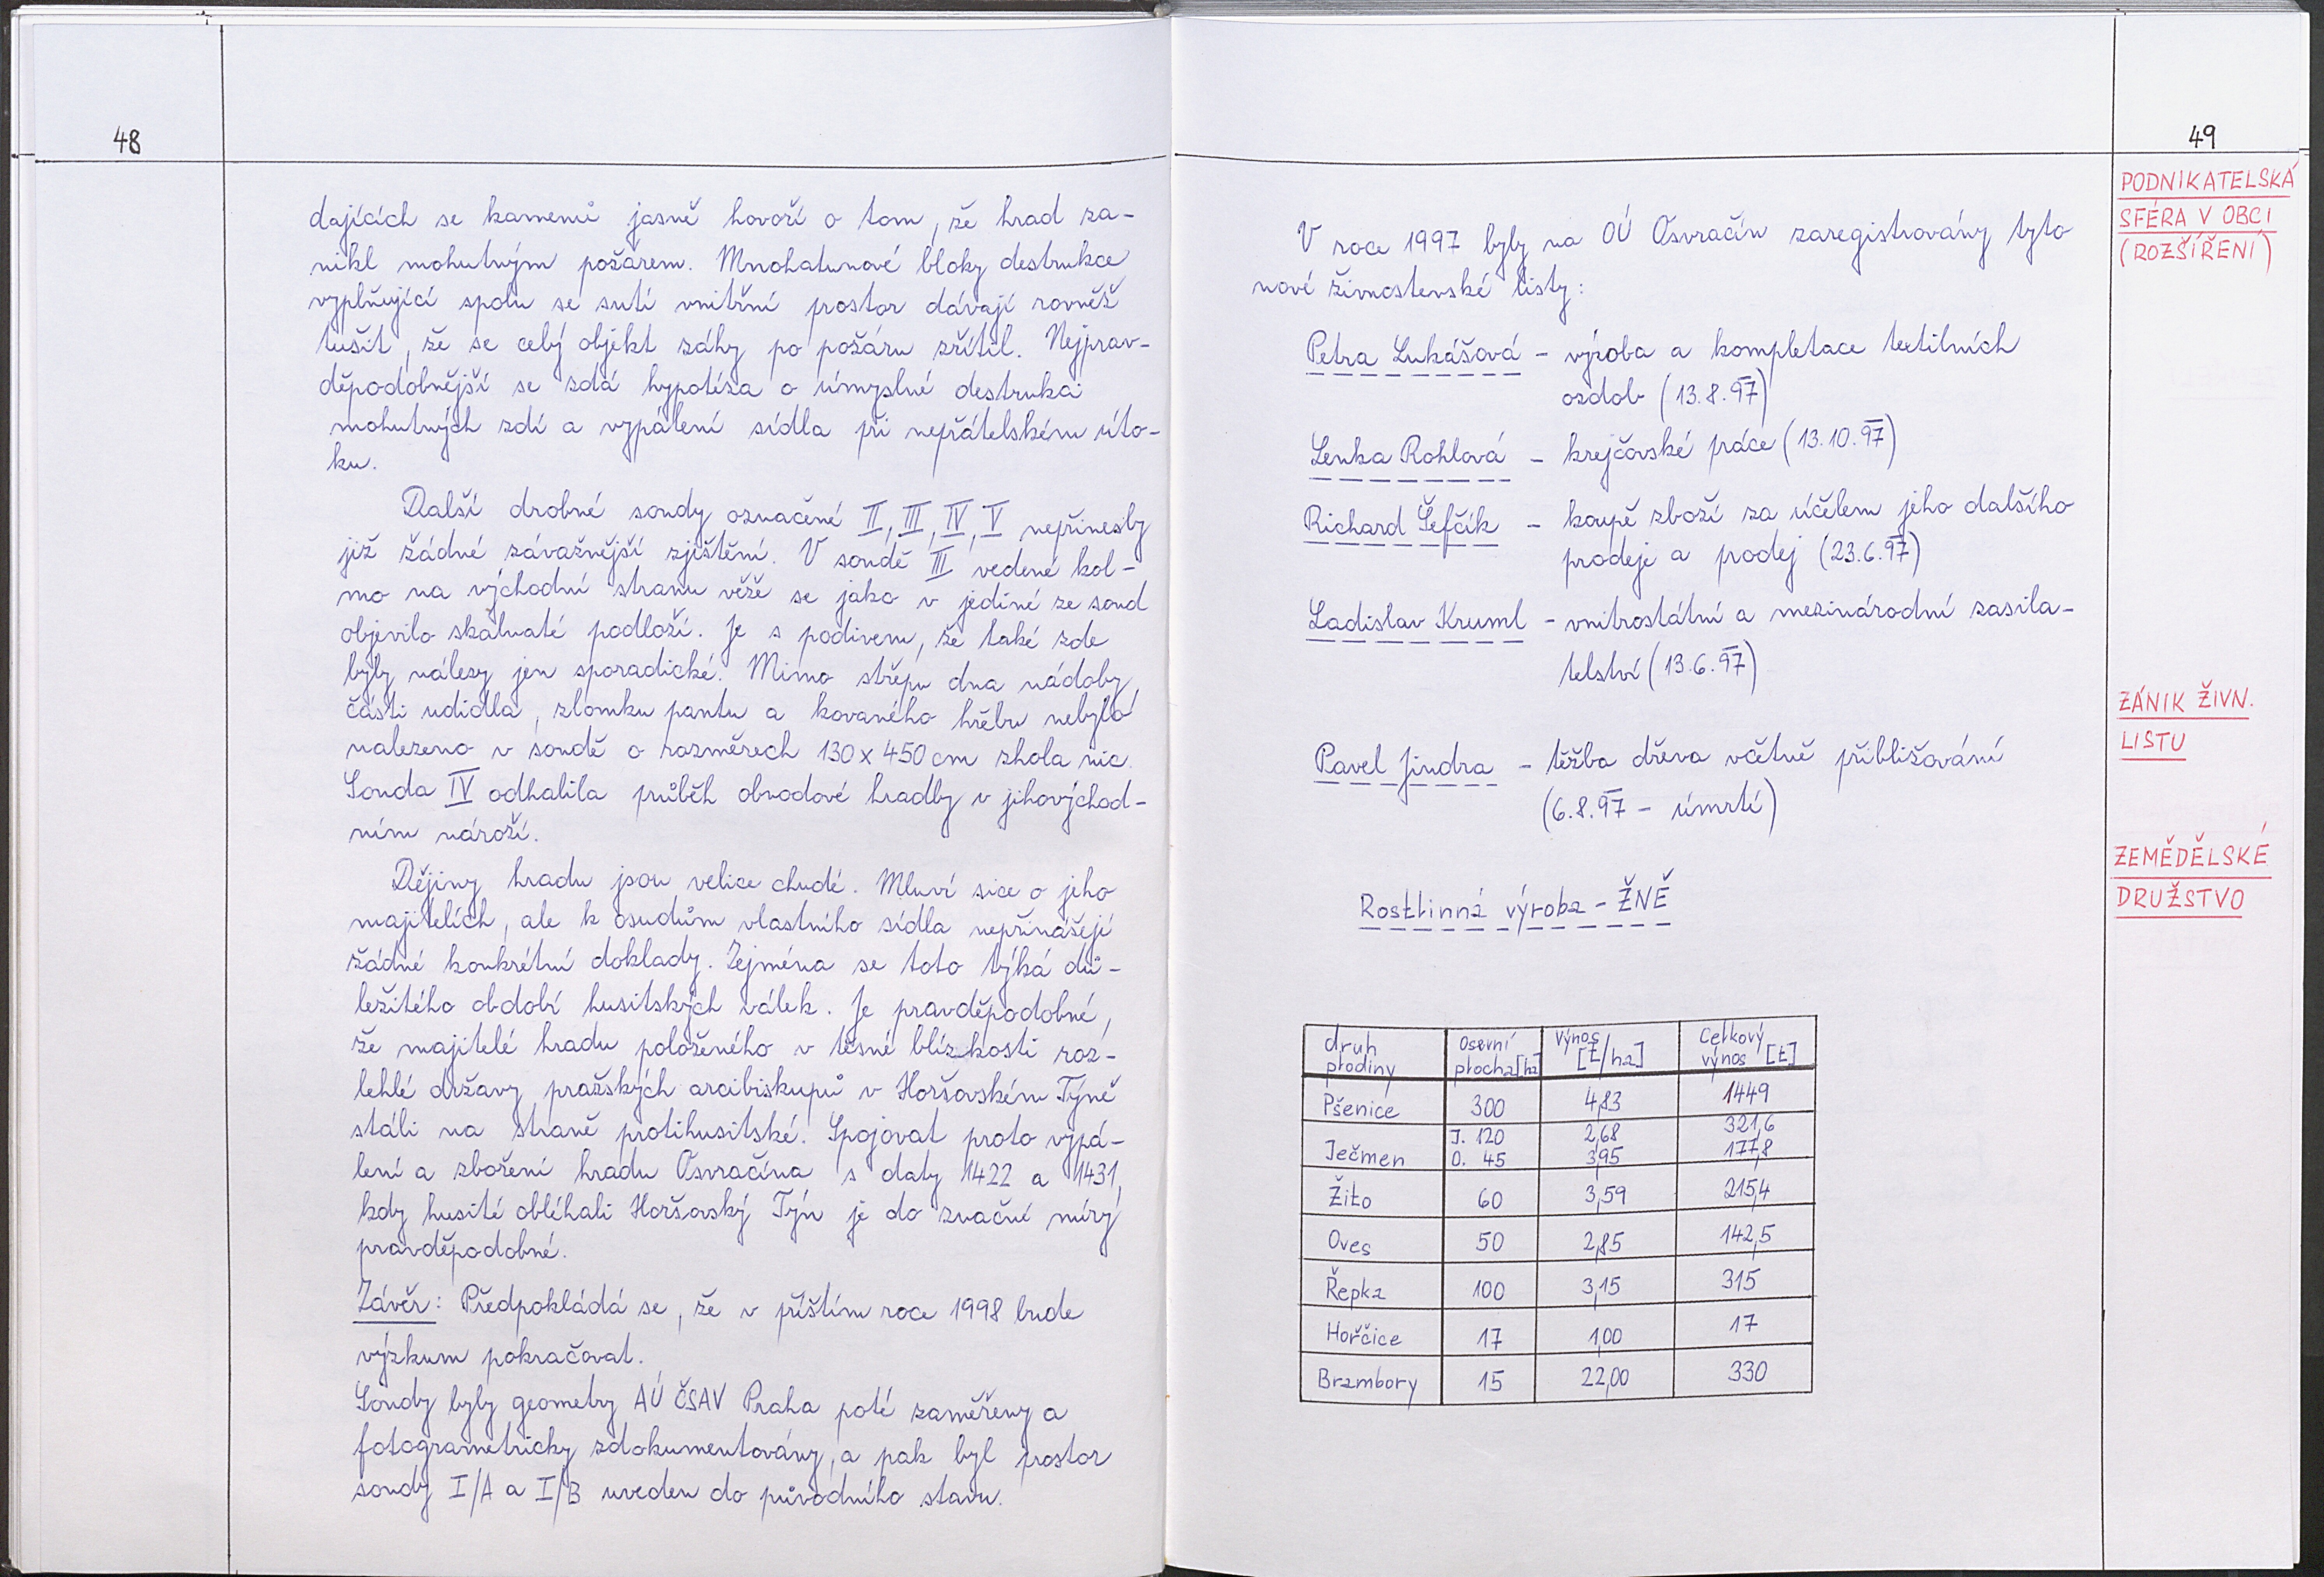 48
dajících se kamenů jasně hovoří o tom, že hrad za-
nikl mohutným požárem. Mnohatunové bloky destrukce
vyplňující spolu se sutí vnitřní prostor dávají rovněž
tušit, že se celý objekt záhy po požáru zřítil. Nejprav-
děpodobnější se zdá hypotéza o úmyslné destrukci
mohutných zdí a vypálení sídla při nepřátelském úto-
ku.
Další drobné sondy označené II, III, IV, V nepřinesly
již žádné závažnější zjištění. V sondě III vedené kol-
mo na východní stranu věže se jako v jediné ze sond
objevilo skalnaté podloží. Je s podivem, že také zde
byly nálezy jen sporadické. Mimo střepu dna nádoby,
části udidla, zlomku pantu a kovaného hřebu nebylo
nalezeno v sondě o rozměrech 130 x 450 cm zhola nic.
Sonda IV odhalila průběh obvodové hradby v jihovýchod-
ním nároží.
Dějiny hradu jsou velice chudé. Mluví sice o jeho
majitelích, ale k osudům vlastního sídla nepřinášejí
žádné konkrétní doklady. Zejména se toto týká dů-
ležitého období husitských válek. Je pravděpodobné,
že majitelé hradu položeného v těsné blízkosti roz-
lehlé državy pražských arcibiskupů v Horšovském Týně
stáli na straně protihusitské. Spojovat proto vypá-
lení a zboření hradu Osvračína s daty 1422 a 1431,
kdy husité obléhali Horšovský Týn je do značné míry
pravděpodobné.
Závěr: Předpokládá se, že v příštím roce 1998 bude
výzkum pokračovat.
Sondy byly geometry AÚ ČSAV Praha poté zaměřeny a
fotogrametricky zdokumentovány, a pak byl prostor
sondy I/A a I/B uveden do původního stavu.
49
PODNIKATELSKÁ
SFÉRA V OBCI
(ROZŠÍŘENÍ)
V roce 1997 byly na OÚ Osvračín zaregistrovány tyto
nové živnostenské listy:
Petra Lukášová - výroba a kompletace textilních
ozdob (13.8.97)
Lenka Rohlová - krejčovské práce (13.10.97)
Richard Šefčík - koupě zboží za účelem jeho dalšího
prodeje a prodej (23.6.97)
Ladislav Kruml - vnitrostátní a mezinárodní zasila-
telství (13.6.97)
ZÁNIK ŽIVN.
LISTU
Pavel Jindra - těžba dřeva včetně přibližování
(6.8.97 - úmrtí)
ZEMĚDĚLSKÉ
DRUŽSTVO
Rostlinná výroba - ŽNĚ
druh plodiny Osevní plocha [ha] Výnos [t/ha] Celkový výnos [t]
Pšenice 300 4,83 1449
Ječmen J. 120 2,68 321,6
O. 45 3,95 177,8
Žito 60 3,59 215,4
Oves 50 2,85 142,5
Řepka 100 3,15 315
Hořčice 17 1,00 17
Brambory 15 22,00 330